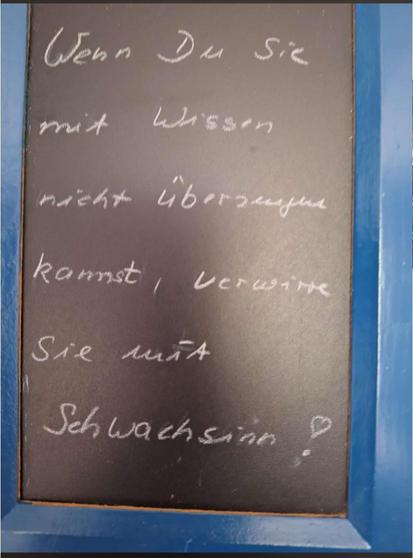 Wenn Du Sie
mit Wissen
nicht überzeugen
kannst, verwirre
Sie mit
Schwachsinn!